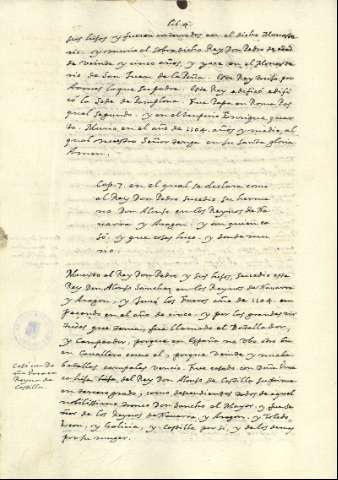 sus hijos y fueron enterrados en el dicho Moneste-
rio. y murio el sobredicho Rey Don Pedro de edad
de veinte y cinco años, y yace en el Moneste-
rio de San Juan de la Peña. Este Rey traia por
Armas lo que su padre. Este Rey edificó edifi-
có la Sede de Pamplona. Fue Papa en Roma Pas
qual segundo. y en el Imperio Enrique quar-
to. Murio en el año de 1104. años y medio, al
qual nuestro Señor tenga en su santa gloria
Amen.
Cap. 7. en el qual se declara como
al Rey Don Pedro sucedio su herma
no Don Alonso en los Reynos de Na
varra y Aragon. y con quien ca
só. y que cosas hizo. y donde mu-
rio.
Muerto el Rey Don Pedro y sus hijos, sucedio este
Rey Don Alonso Sanchez en los Reynos de Navarra
y Aragon, y juró los Fueros año de 1104. em
pezando en el año de cinco. y por los grandes vir
tudes que tenia, fue llamado el Batallador,
y Campeador, porque en España no ubo otro tan
buen Cavallero como el; porque veinte y nueve
batallas campales vencio. Fue casado con Doña Urra
ca hija del Rey Don Alonso de Castilla su prima
en tercero grado, como descendientes todos de aquel
nobilissimo tronco Don Sancho el Mayor. y fue se
ñor de los Reynos de Navarra, y Aragon, y Toledo,
Leon, y Galicia, y Castilla por si, y de los demas
por su muger.
Casó con Do
ña Urraca
Reyna de
Castilla.